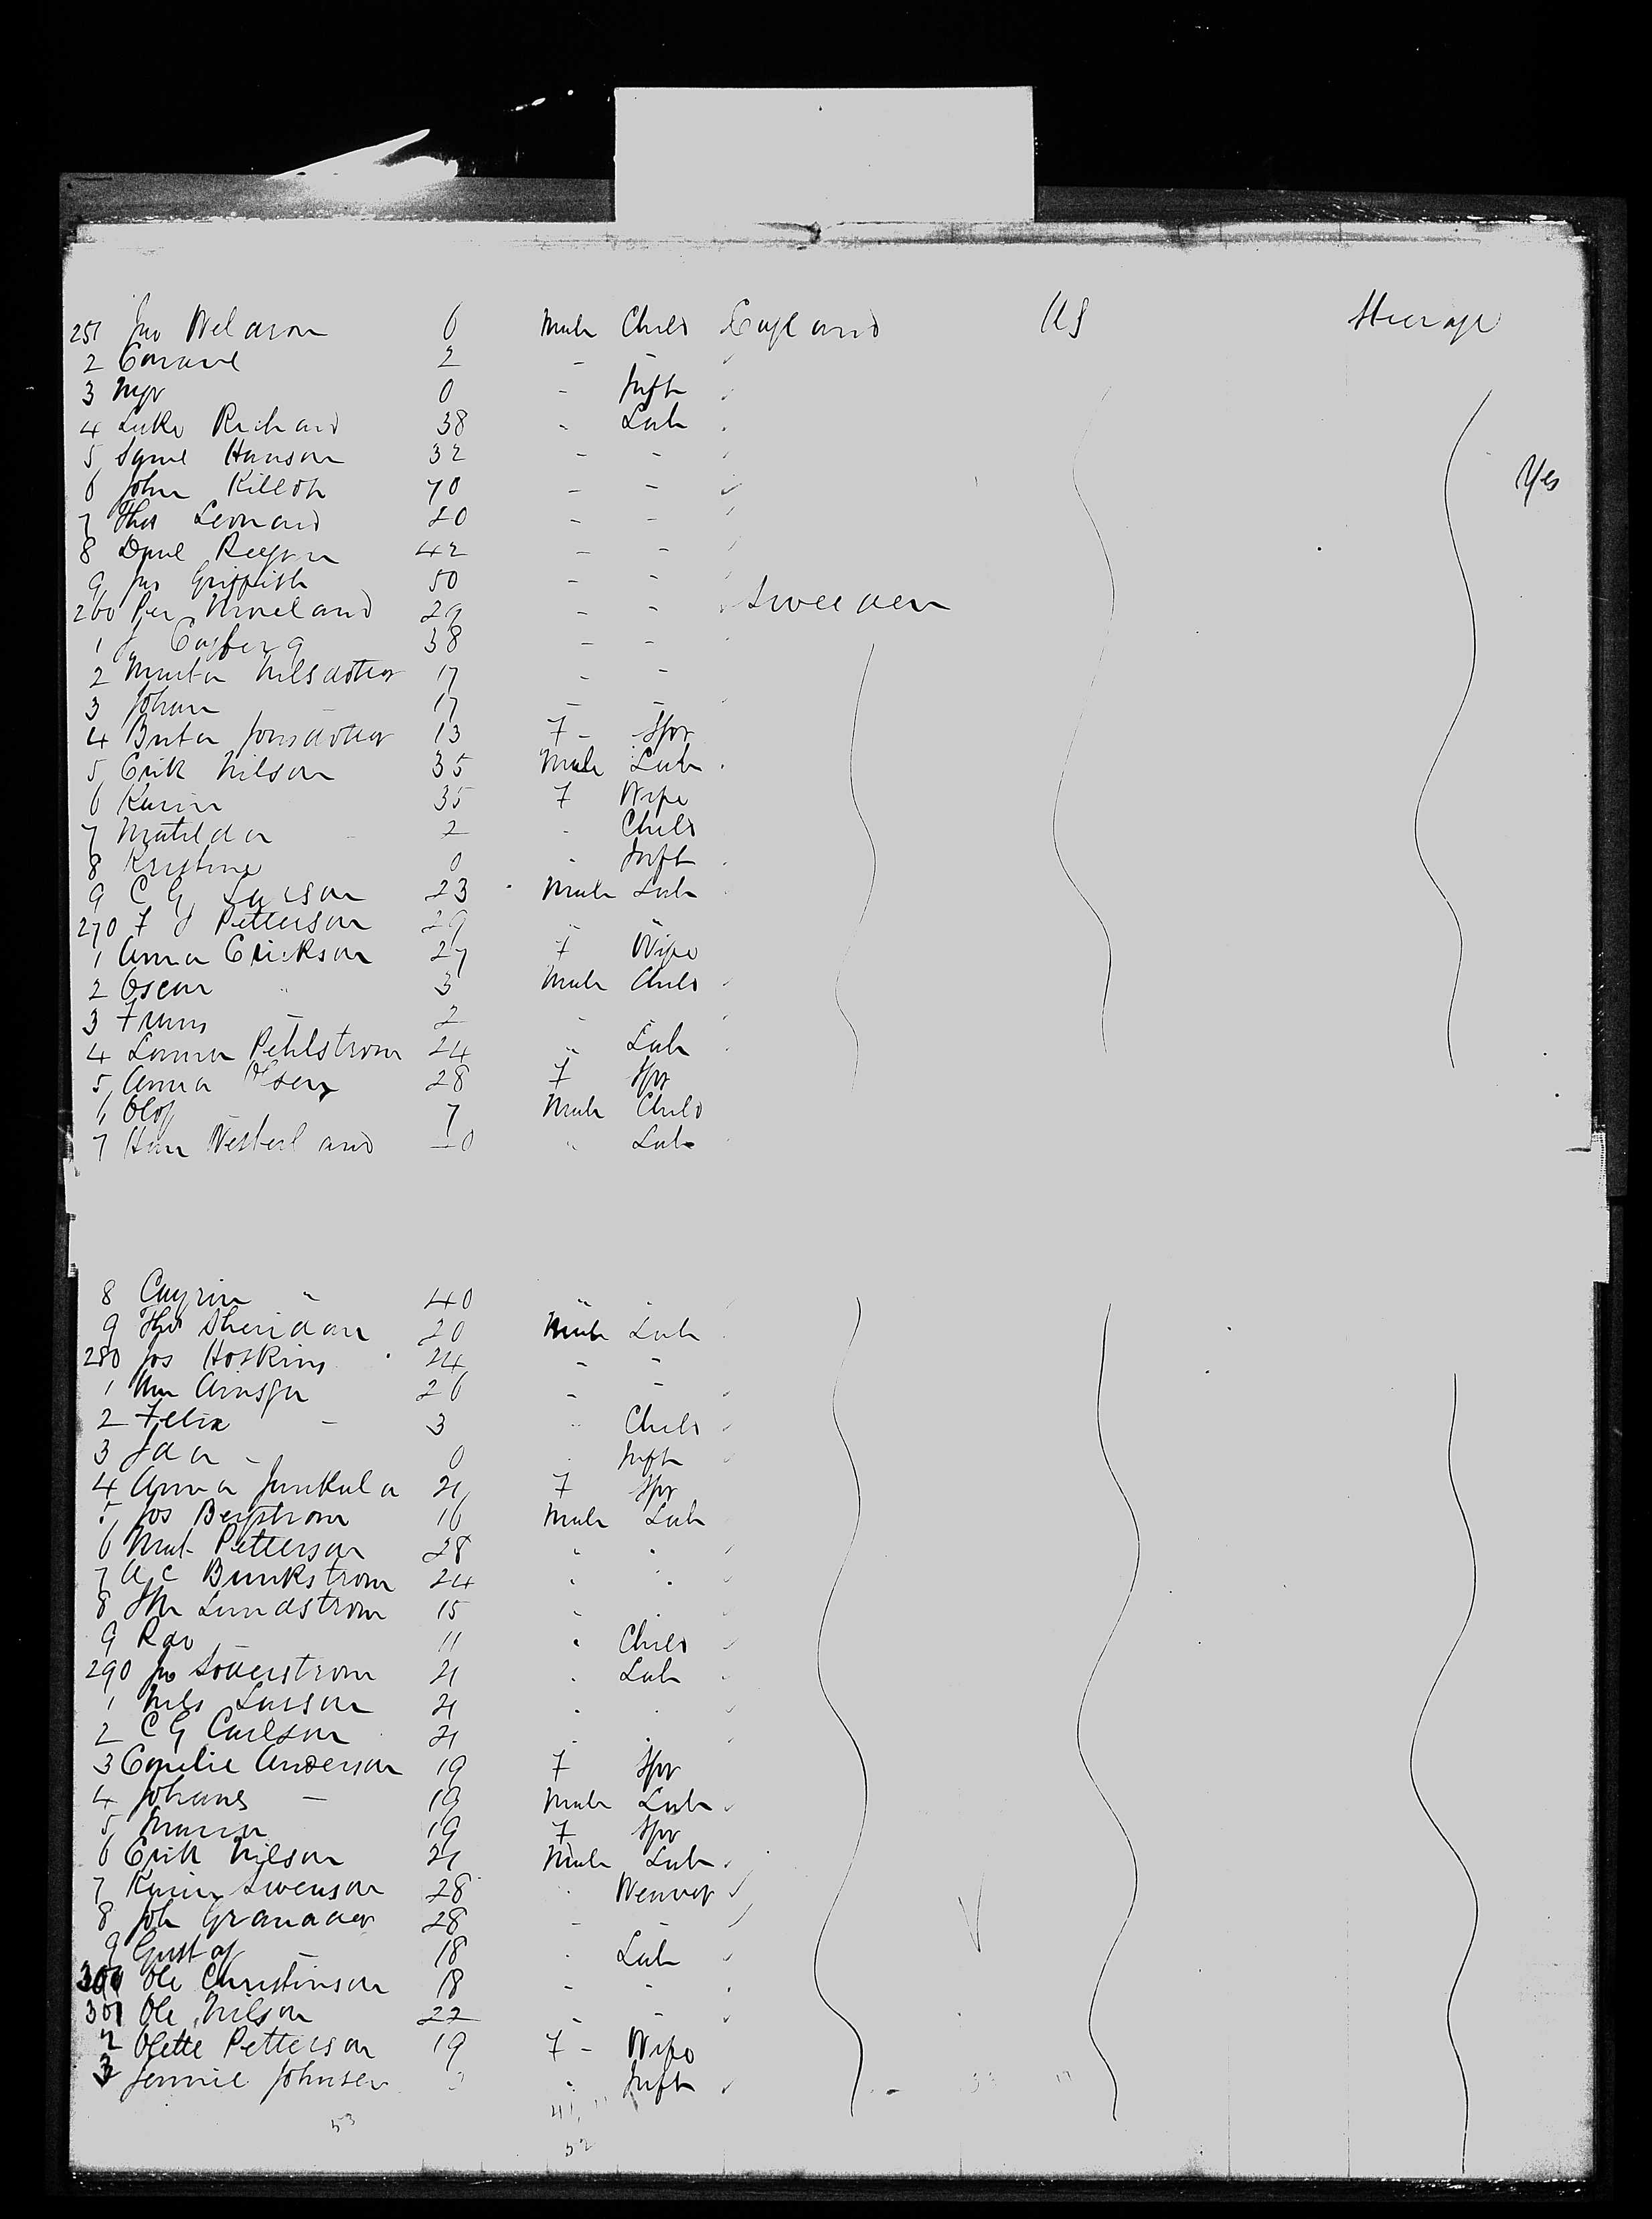 251 Jno Weldron 6 Male Child England US Steerage
2 2 - -
3 0 - Inft
4 Luke Richard 38 - Lab
5 Saml Hanson 32 - -
6 John Killoh 70 - - Yes
7 Thos Leonard 20 - -
8 Danl Reegan 42 - -
9 Jas Griffith 50 - -
260 Per Moreland 29 - - Sweeden
1 38 - -
2 Nilsdotter 17 - -
3 Johan - 17 - -
4 Brita Jonsdotter 13 F - Spr
5 Erik Nilson 35 Male Lab
6 Karin 35 F Wife
7 Matilda - 2 - Child
8 Kristine 0 - Inft
9 C G Larson 23 Male Lab
270 F J Petterson 29 "
1 Anna Erickson 27 F Wife
2 Oscar " 3 Male Child
3 Frans - 2
4 Pehlstrom 24 " Lab
5 Anna Olsen 28 F Spr
6 Olof - 7 Male Child
7 Westerland " Lab
8 " 40 " -
9 Thos Sheridan 20 Male Lab
280 Jos Hoskins 24 - -
1 26 - -
2 Felix - 3 " Child
3 Ida - 0 Inft
4 Anna Junkula 21 F Spr
5 Jos Bergstrom 16 Male Lab
6 Petterson 28 " "
7 A C Bunkstrom 24 " "
8 Lundstrom 15 "
9 - 11 " Child
290 Jno Soderstrom 21 " Lab
1 Nils Larson 21 " "
2 C G Carlson 21 " "
3 Emelie Anderson 19 F Spr
4 Johanes - 19 Male Lab
5 Maria 19 F Spr
6 Erik Nilson 21 Male Lab
7 Karin Swenson 28 " Weaver
8 Joh Granader 28 - -
9 Gustaf - 18 " Lab
300 Ole Christinson 18 - -
301 Ole Nilson 22 - -
2 Olette Petterson 19 F - Wife
3 Jennie Johnsen " Inft
53
52